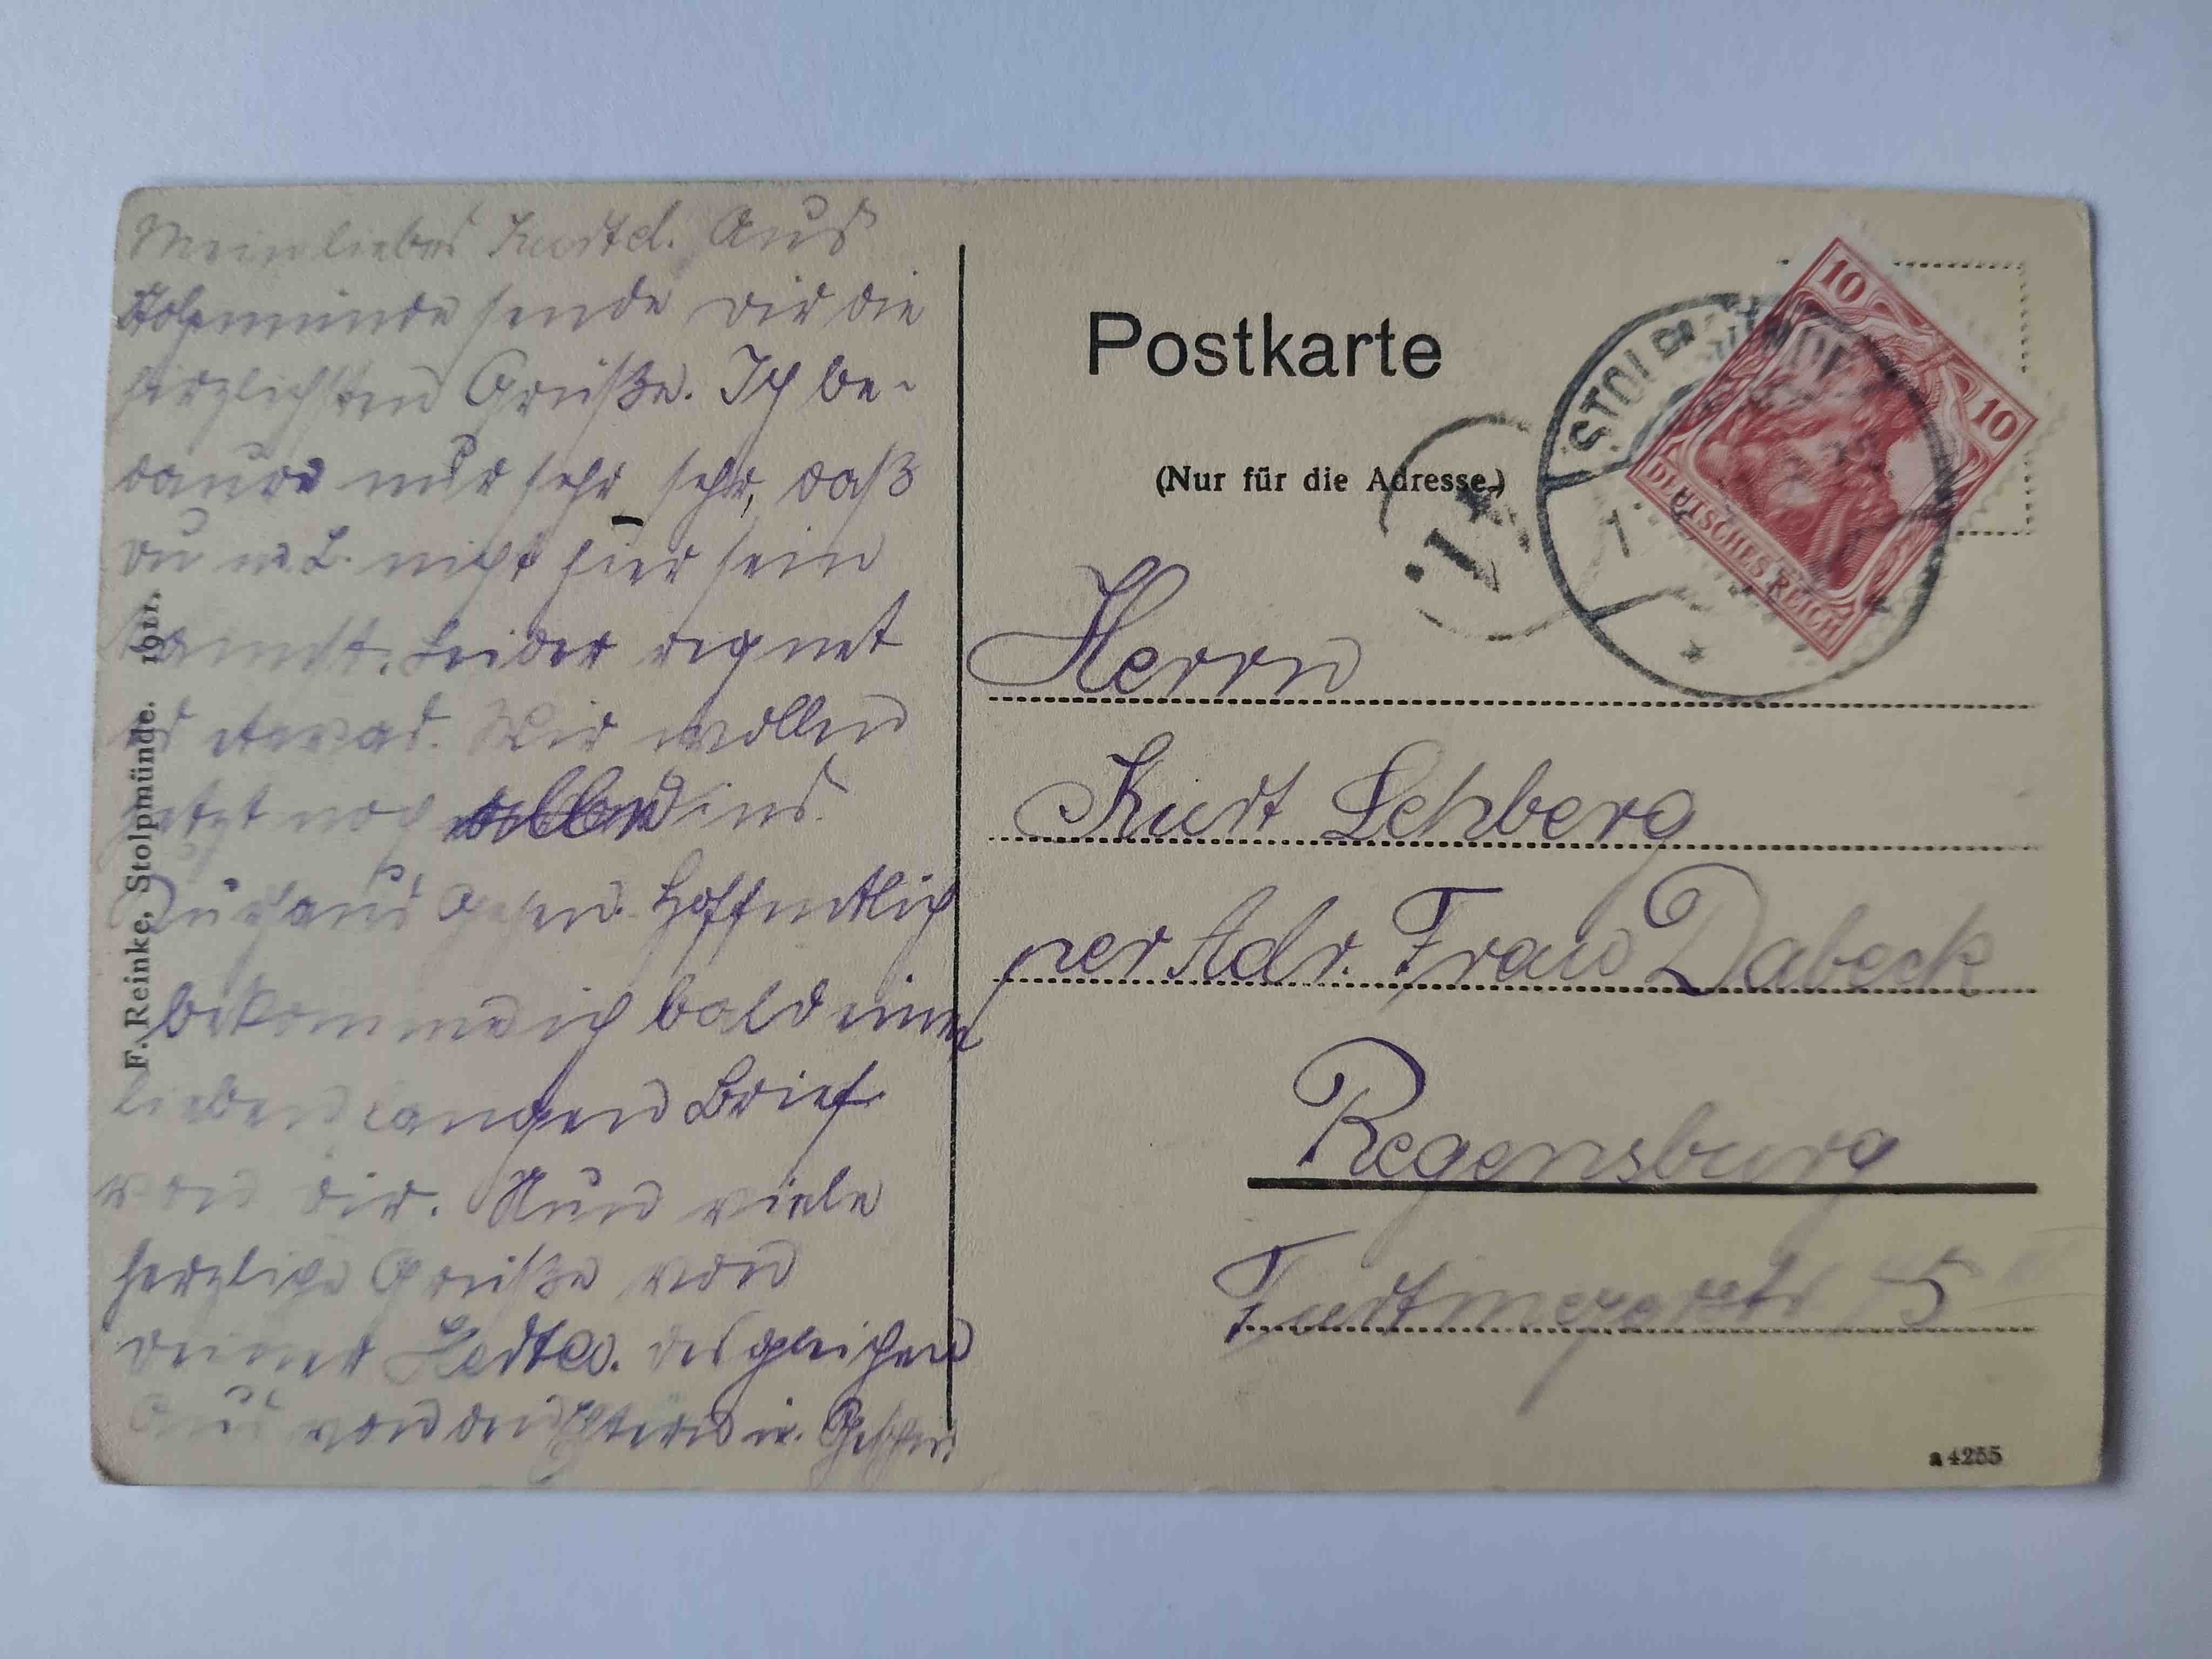 Mein liebes Kurtel. Aus
Stolpmünde sende dir die
herzlichsten Grüße. Ich be-
daure nur sehr, sehr, daß
du m. L. nicht hier sein
kannst. Leider regnet
es etwas. Wir wollen
jetzt noch ins
Kurhaus gehen. Hoffentlich
bekomme ich bald einen
lieben langen Brief
von dir. Nun viele
herzliche Grüße von
deiner desgleichen
von
F. Reinke, Stolpmünde. 1911.
Postkarte
(Nur für die Adresse.)
10
10
DEUTSCHES REICH
STOLPMÜNDE
Herrn
Kurt Lehberg
per Adr. Frau Dabeck
Regensburg
a 4255